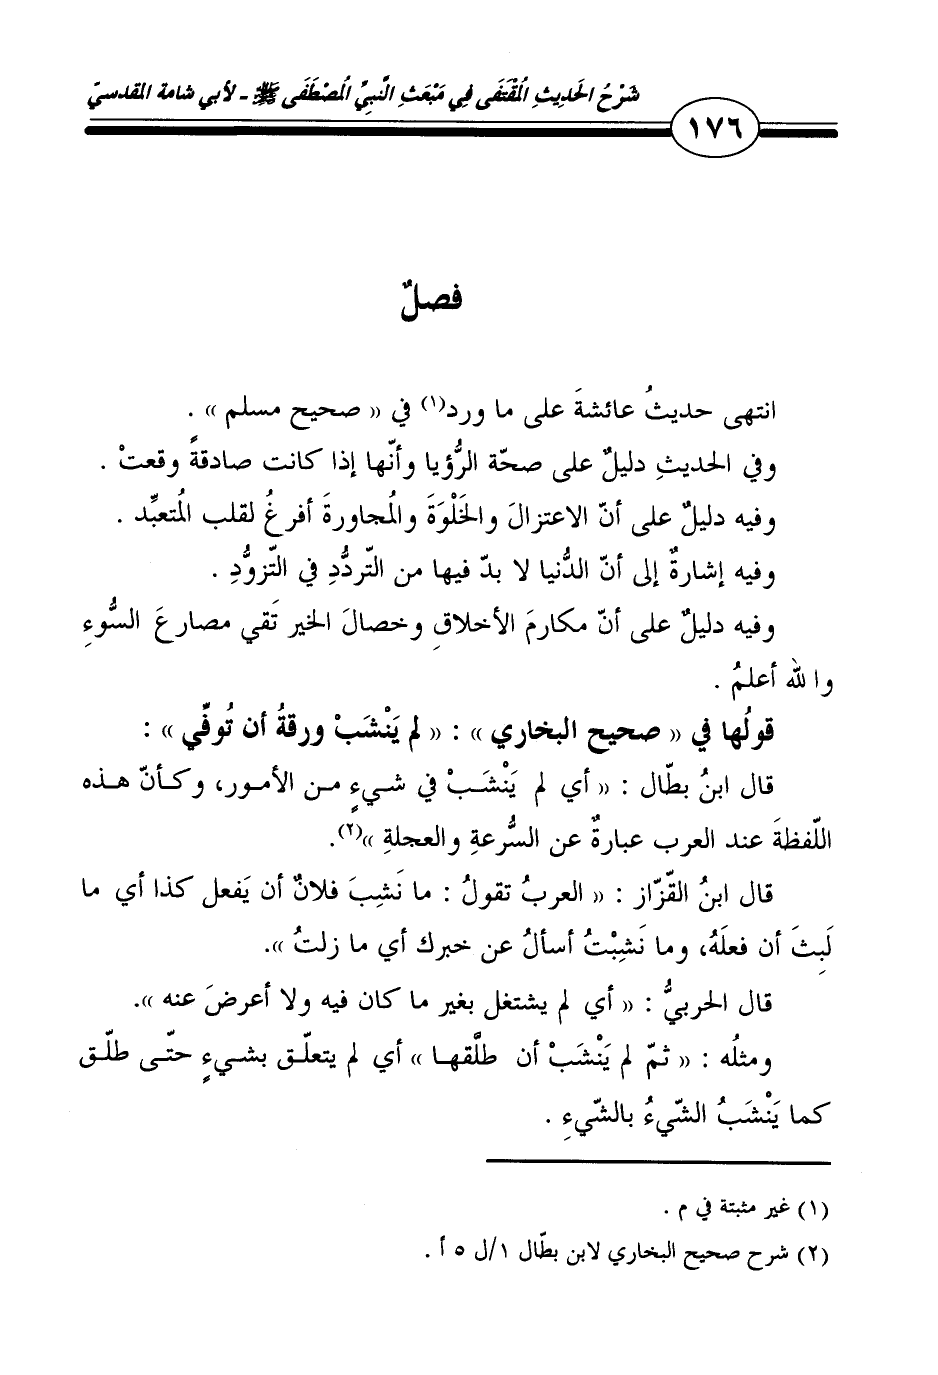 شَرْحُ الحَدِيثِ المُقْتَفَى فِي مَبْعَثِ النَّبِيِّ المُصْطَفَى ﷺ - لأبي شامة المقدسيّ
١٧٦
فصلٌ
انتهى حديثُ عائشةَ على ما ورد(١) في « صحيح مسلم » .
وفي الحديثِ دليلٌ على صحّة الرُّؤيا وأنّها إذا كانت صادقةً وقعتْ .
وفيه دليلٌ على أنّ الاعتزالَ والخَلْوَةَ والمُجاورةَ أفرغُ لقلب المُتعبِّد .
وفيه إشارةٌ إلى أنّ الدُّنيا لا بدّ فيها من التّردُّدِ في التّزوُّدِ .
وفيه دليلٌ على أنّ مكارمَ الأخلاقِ وخصالَ الخير تَقي مصارعَ السُّوءِ
والله أعلمُ .
قولُها في « صحيح البخاري » : « لم يَنْشَبْ ورقةُ أن تُوفّي » :
قال ابنُ بطّال : « أي لم يَنْشَبْ في شيءٍ من الأمور، وكأنّ هذه
اللّفظةَ عند العرب عبارةٌ عن السُّرعةِ والعجلةِ »(٢).
قال ابنُ القزّاز : « العربُ تقولُ : ما نَشِبَ فلانٌ أن يَفعل كذا أي ما
لَبِثَ أن فعلَهُ، وما نَشِبْتُ أسألُ عن خبرك أي ما زلتُ ».
قال الحربيُّ : « أي لم يشتغل بغير ما كان فيه ولا أعرضَ عنه ».
ومثلُه : « ثمّ لم يَنْشَبْ أن طلَّقها » أي لم يتعلّق بشيءٍ حتّى طلّق
كما يَنْشَبُ الشّيءُ بالشّيءِ .
(١) غير مثبتة في م .
(٢) شرح صحيح البخاري لابن بطّال ١/ل ٥ أ .